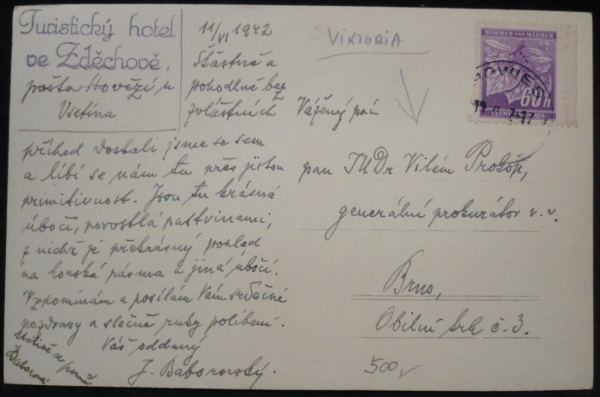 Turistický hotel
ve Zděchově,
pošta Hovězí u
Vsetína
11/VI 1942
Šťastně a
pohodlně bez
zvláštních
příhod dostali jsme se sem
a líbí se nám tu přes jistou
primitivnost. Jsou tu krásná
úbočí, porostlá pastvinami,
z nichž je překrásný pohled
na horská pásma a jiná úbočí.
Vzpomínám a posílám Vám srdečné
pozdravy a slečně ruky políbení.
Váš oddaný
J. Baborovský.
VIKTORIA
Vážený pán
pan JUDr Vilém Prokop,
generální prokurátor v. v.
Brno,
Obilní trh č. 3.
500,-
BÖHMEN UND MÄHREN
60h
ČECHY A MORAVA